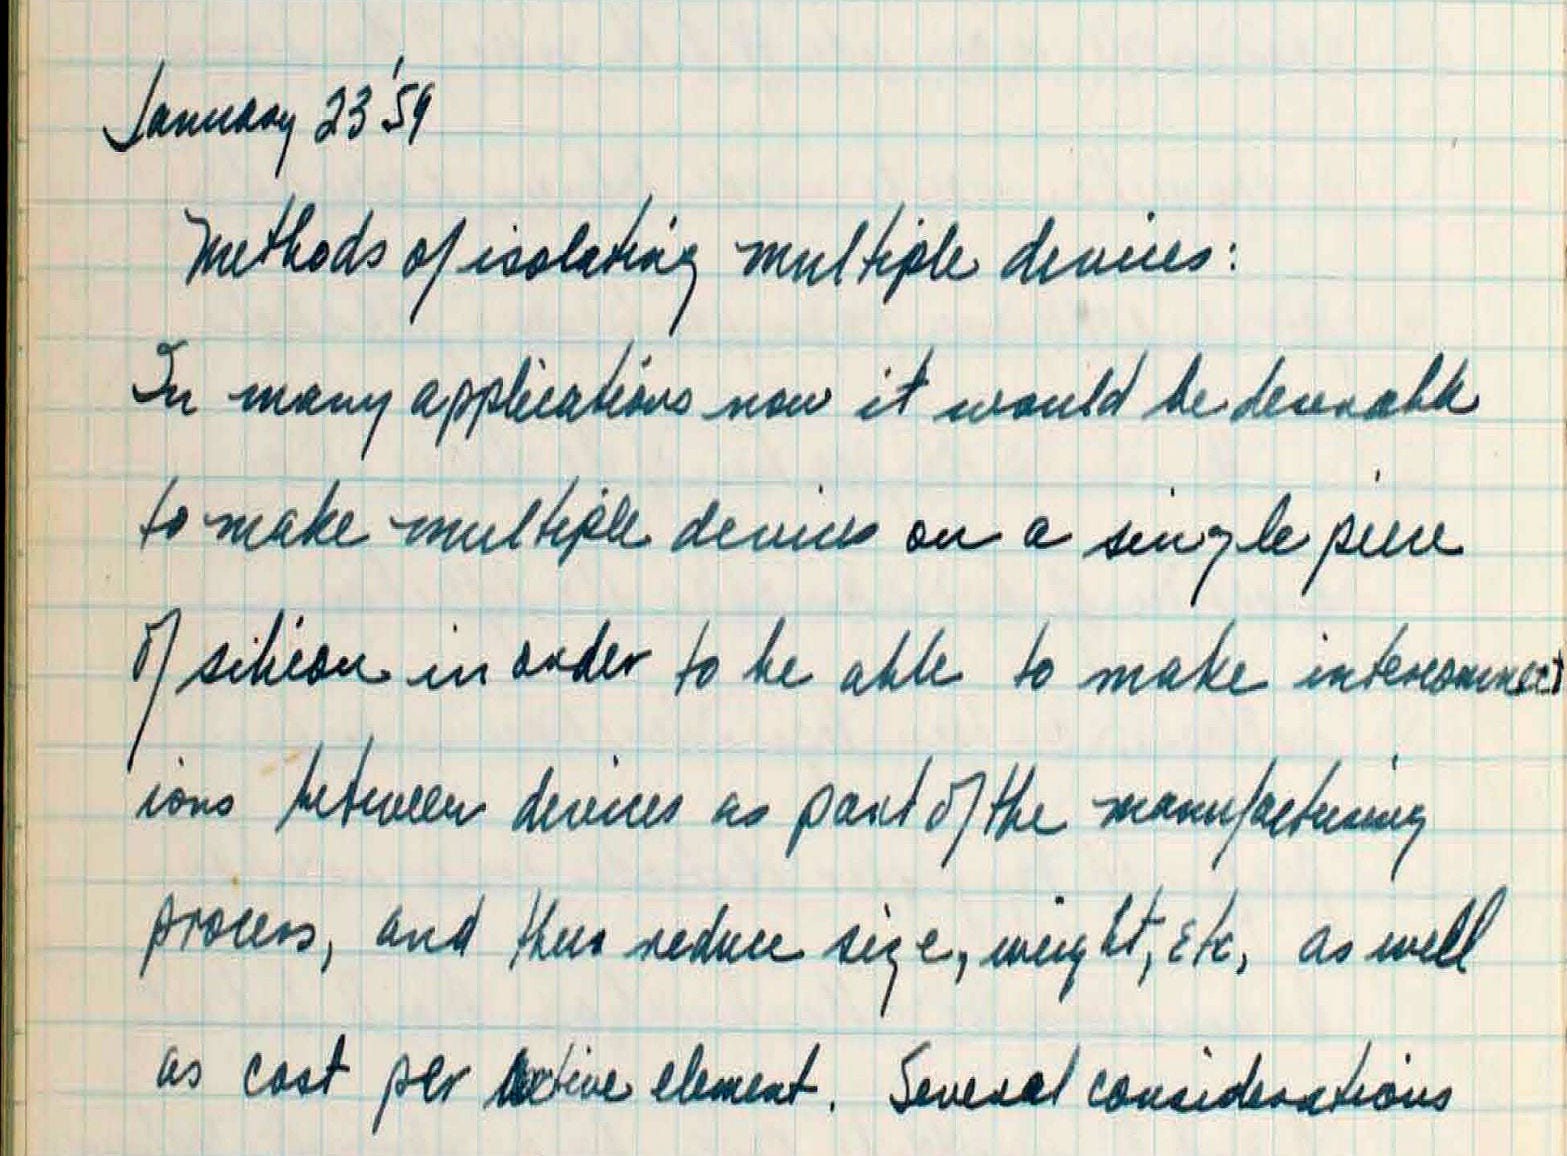 January 23 '59
Methods of isolating multiple devices:
In many applications now it would be desirable
to make multiple devices on a single piece
of silicon in order to be able to make interconnect
ions between devices as part of the manufacturing
process, and thus reduce size, weight, etc, as well
as cost per active element. Several considerations